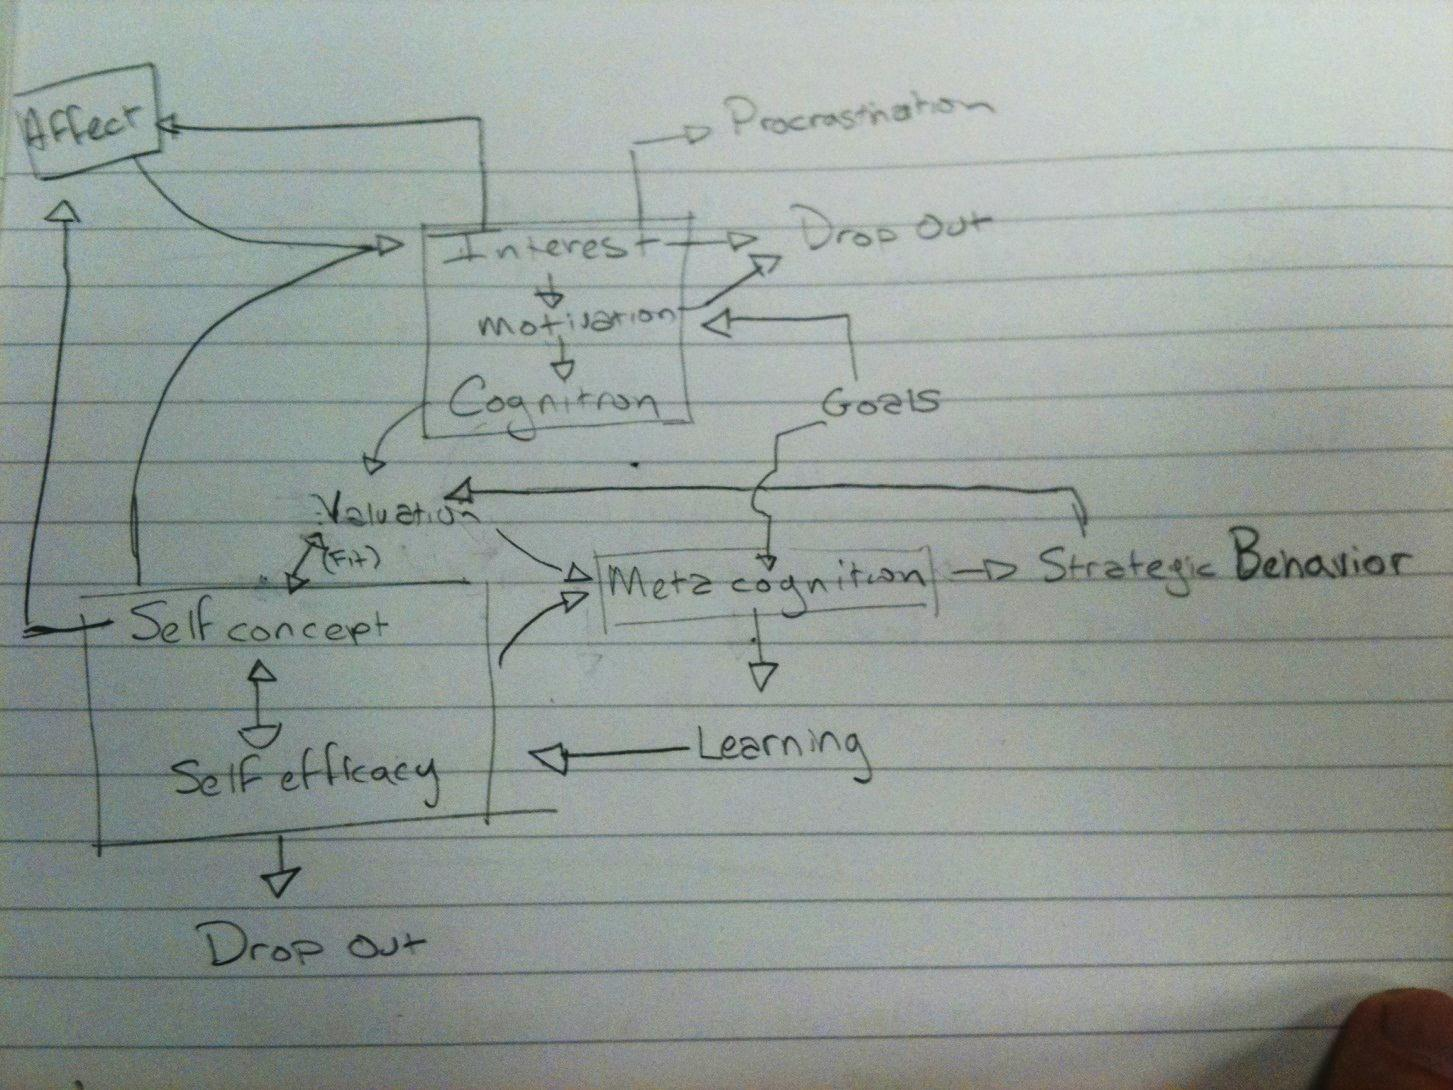 Affect
Procrastination
Interest
Drop Out
motivation
Cognition
Goals
Valuation
(Fit)
Metacognition
Strategic Behavior
Self concept
Learning
Self efficacy
Drop out